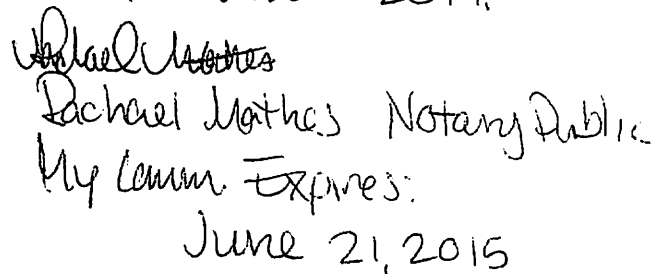 2014.
Rachael Mathes
Rachael Mathes Notary Public
My Comm. Expires:
June 21, 2015